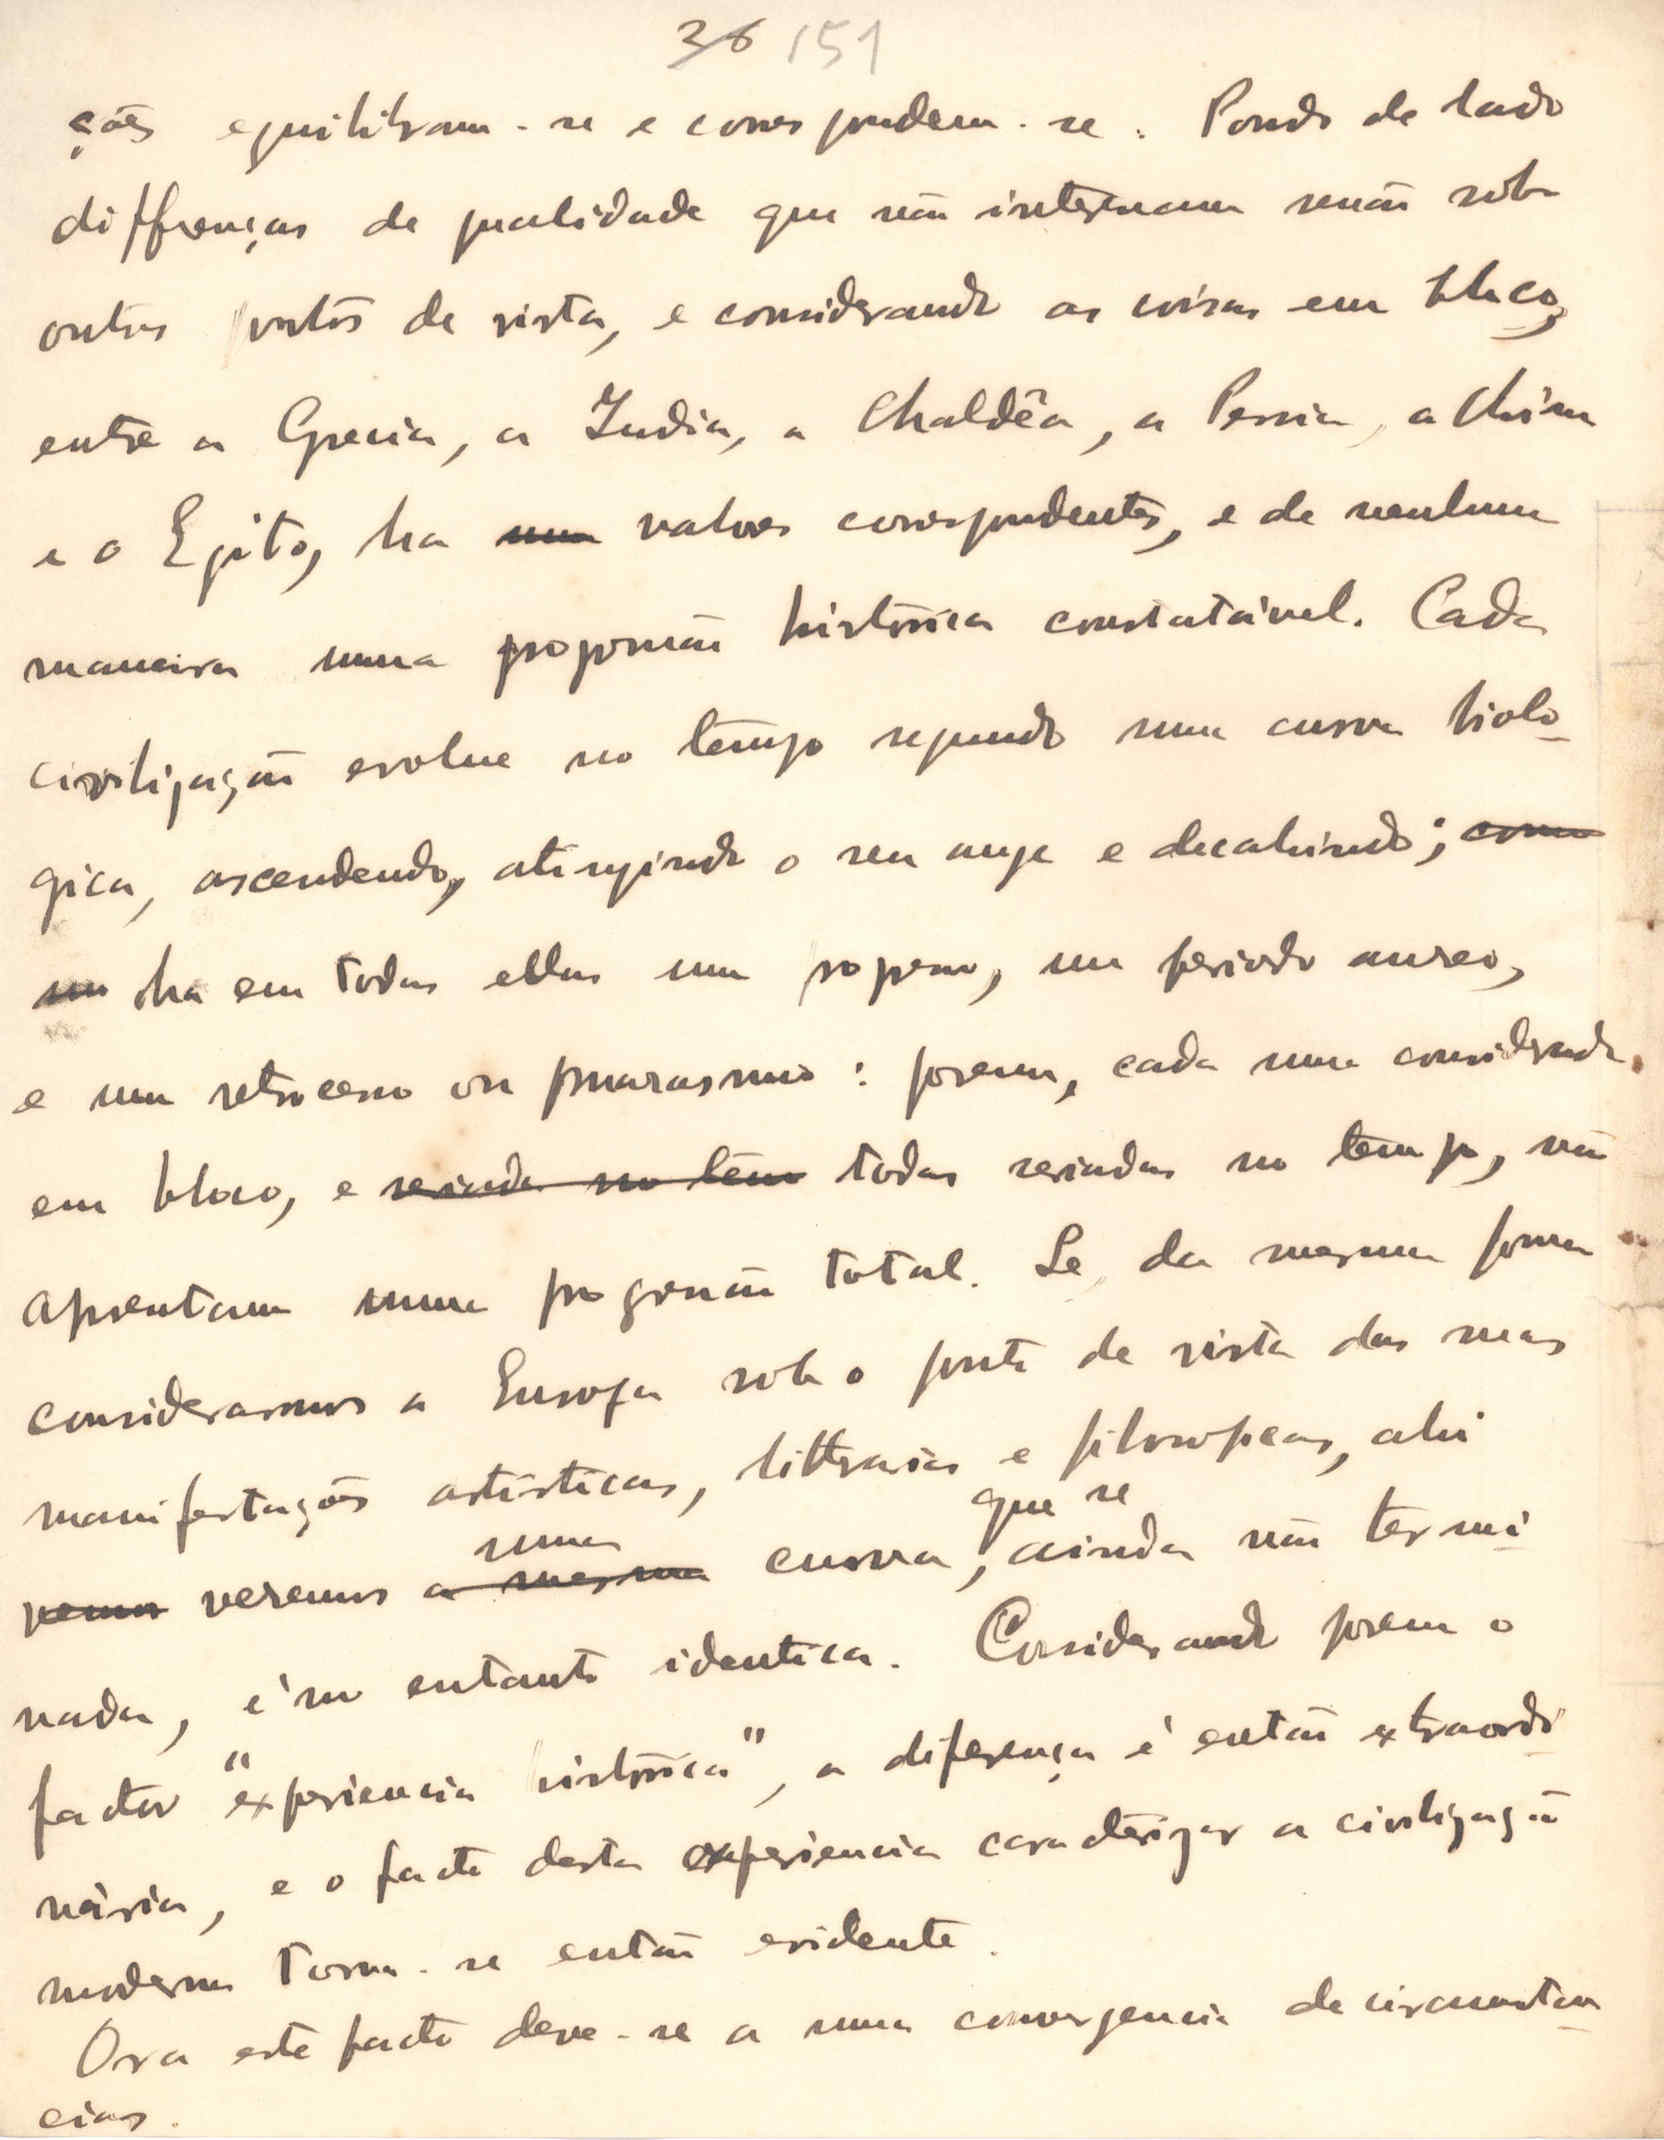 36 151
ções equilibram-se e correspondem-se. Pondo de lado
differenças de qualidade que não interessam senão sob
outros pontos de vista, e considerando as coisas em bloco,
entre a Grecia, a India, a Chaldêa, a Persia, a China
e o Egito, ha uma valores correspondentes, e de nenhuma
maneira uma progressão histórica constatável. Cada
civilização evolue no tempo segundo uma curva biolo-
gica, ascendendo, atingindo o seu auge e decahindo; como
um ha em todas ellas um progresso, um periodo aureo,
e um retrocesso ou marasmo: porem, cada uma considerada
em bloco, e seriada no tem todas seriadas no tempo, não
apresentam uma progressão total. Se da mesma forma
considerarmos a Europa sob o ponto de vista das suas
manifestações artisticas, litterarias e filosoficas, ahi
que se
uma
vemos veremos a mesma curva, ainda não termi-
nada, é no entanto identica. Considerando porem o
factor "experiencia histórica", a diferença é então extraordi-
nária, e o facto desta experiencia caracterizar a civilização
moderna torna-se então evidente.
Ora este facto deve-se a uma convergencia de circunstan-
cias.